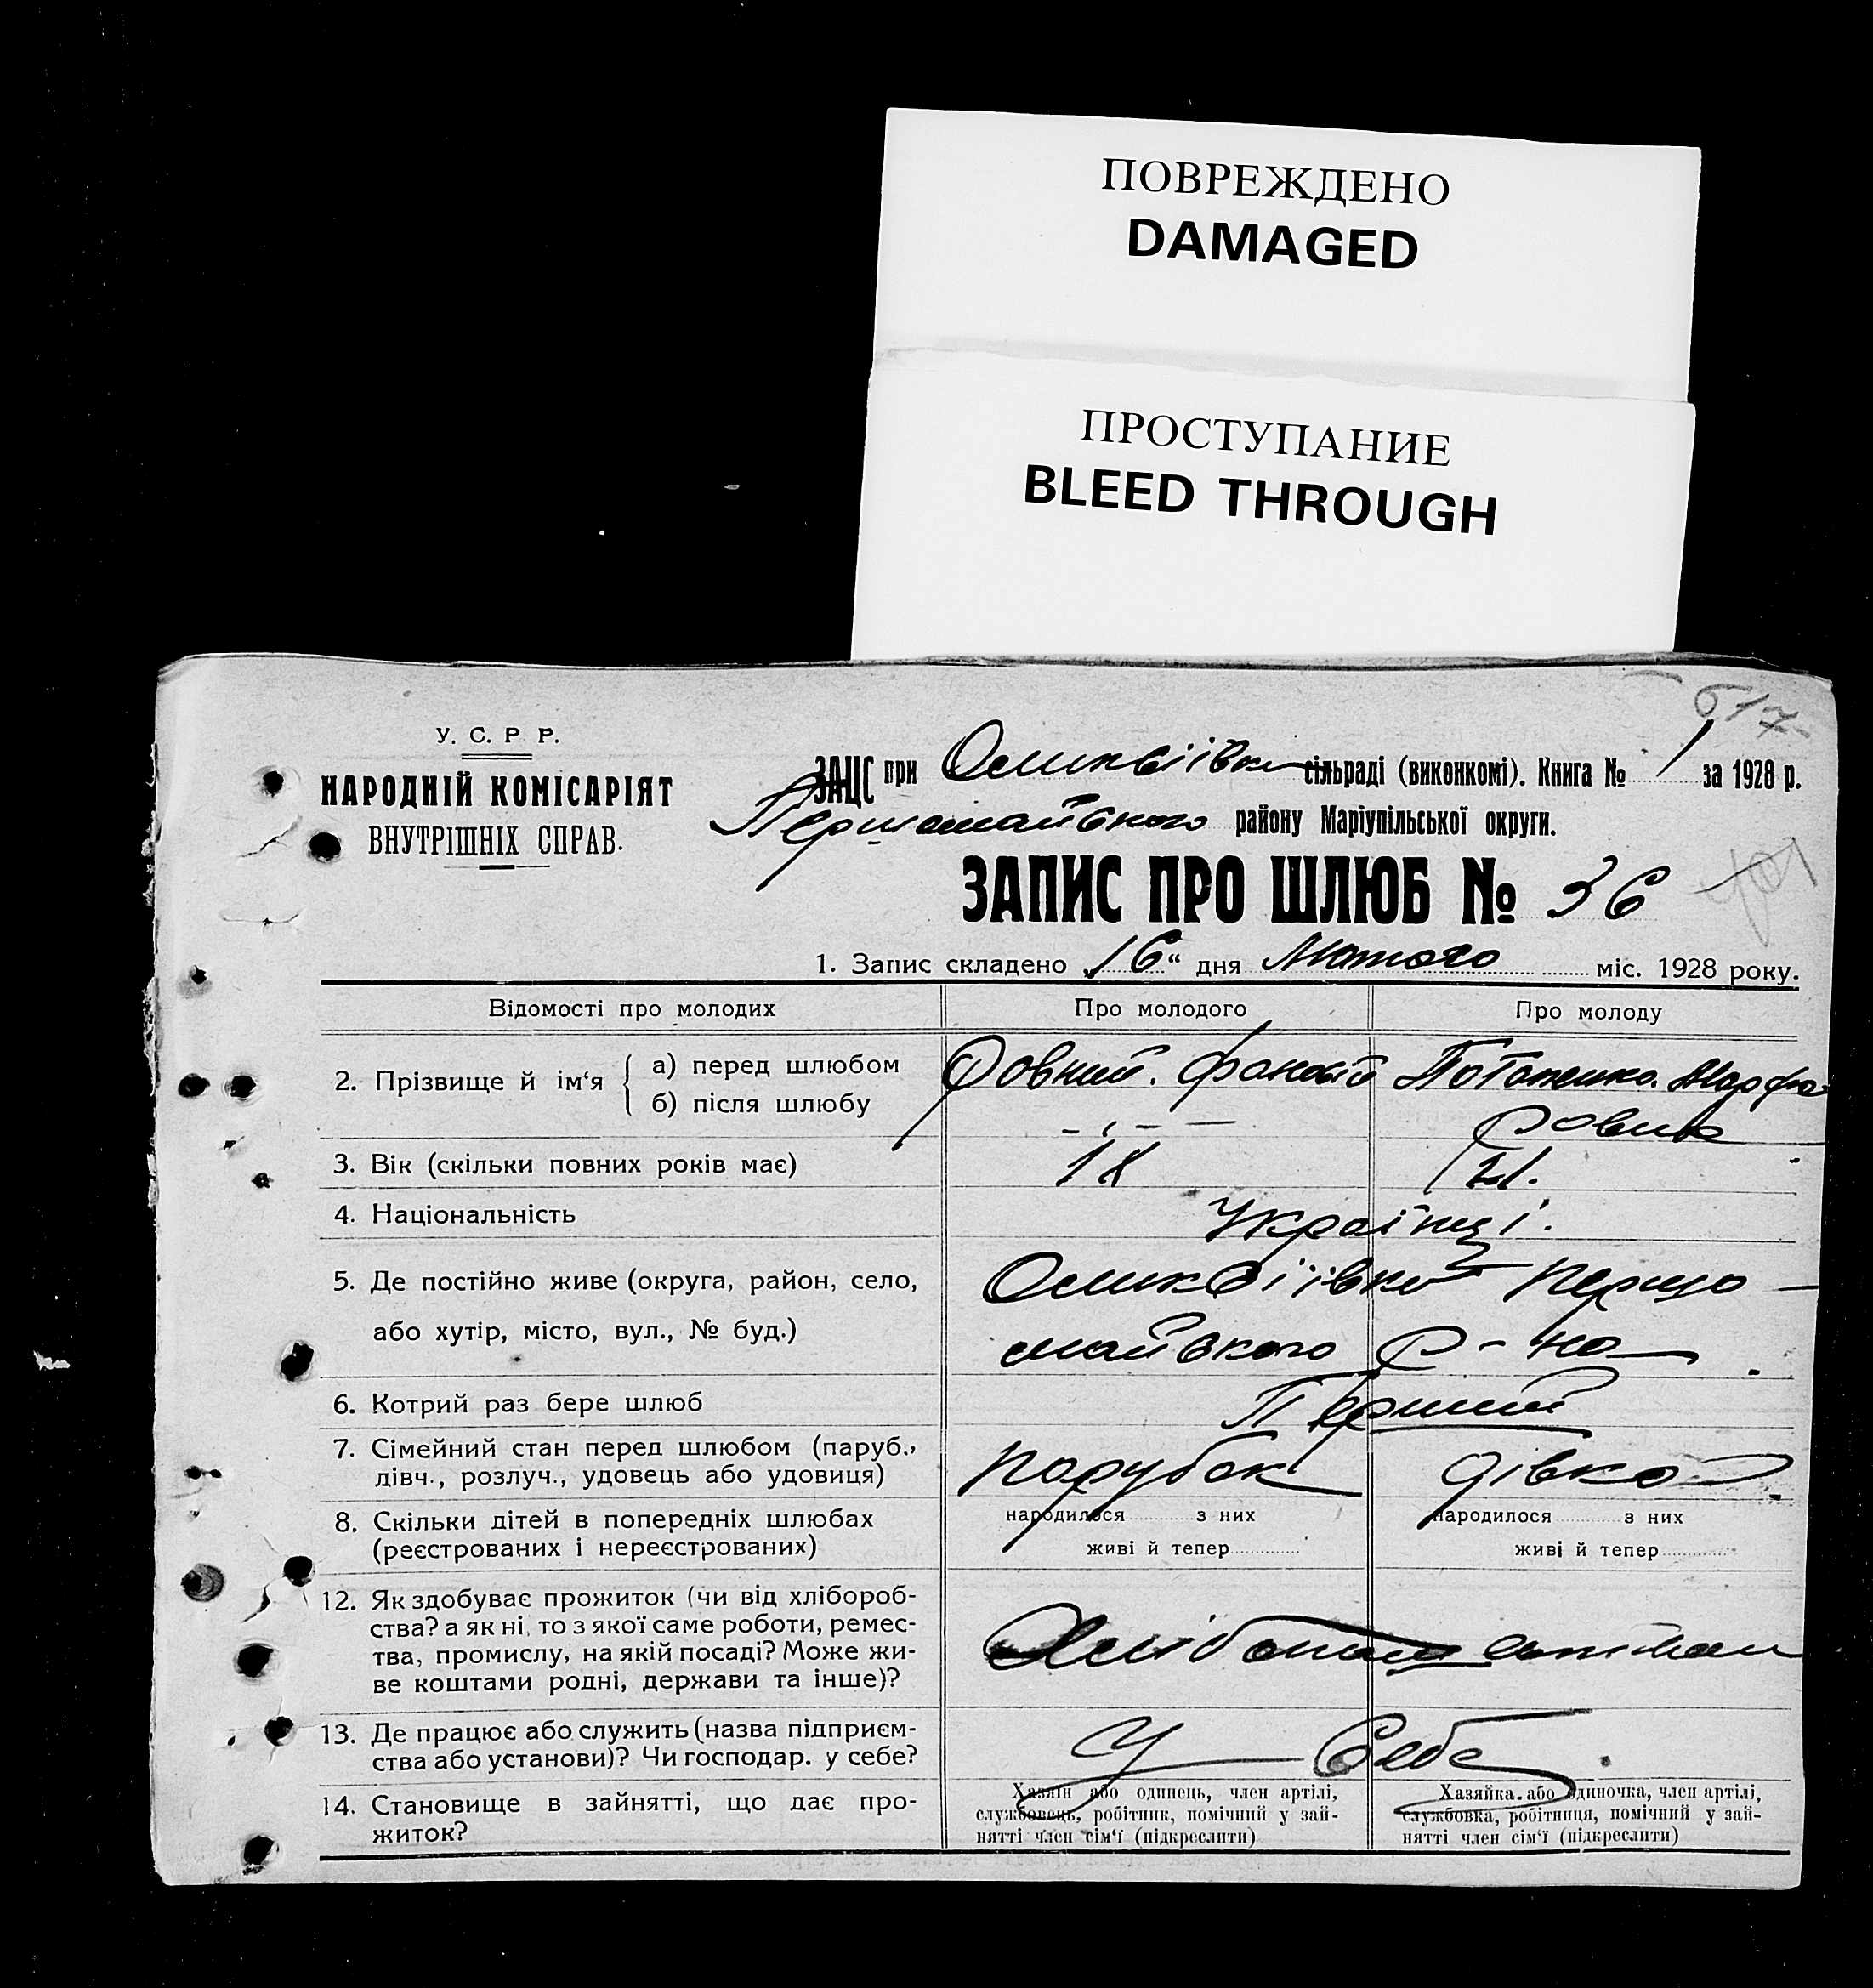 ПОВРЕЖДЕНО
DAMAGED
ПРОСТУПАНИЕ
BLEED THROUGH
617
У. С. Р Р.
НАРОДНІЙ КОМІСАРІЯТ
ВНУТРІШНІХ СПРАВ.
ЗАЦС при сільраді (виконкомі). Книга № 1 за 1928 р.
Першомайського району Маріупільської округи.
ЗАПИС ПРО ШЛЮБ № 36
1. Запис складено „16“ дня Лютого міс. 1928 року.
Відомості про молодих Про молодого Про молоду
2. Прізвище й ім‘я { а) перед шлюбом Ровний. Потапенко. Марфа
б) після шлюбу – „ – —
3. Вік (скільки повних років має) 18 21.
4. Національність Українці.
5. Де постійно живе (округа, район, село, Першо-
або хутір, місто, вул., № буд.) майського р-на
6. Котрий раз бере шлюб Перший
7. Сімейний стан перед шлюбом (паруб., парубок дівка
дівч., розлуч., удовець або удовиця)
8. Скільки дітей в попередніх шлюбах народилося з них народилося з них
(реєстрованих і нереєстрованих) живі й тепер живі й тепер
12. Як здобуває прожиток (чи від хлібороб-
ства? а як ні, то з якої саме роботи, ремес-
тва, промислу, на якій посаді? Може жи-
ве коштами родні, держави та інше)?
13. Де працює або служить (назва підприєм- У Себе.
ства або установи)? Чи господар. у себе?
14. Становище в зайнятті, що дає про-
житок?
Хазяїн або одинець, член артілі,
службовець, робітник, помічний у зай-
нятті член сім‘ї (підкреслити)
Хазяйка. або одиночка, член артілі,
службовка, робітниця, помічний у зай-
нятті член сім‘ї (підкреслити)